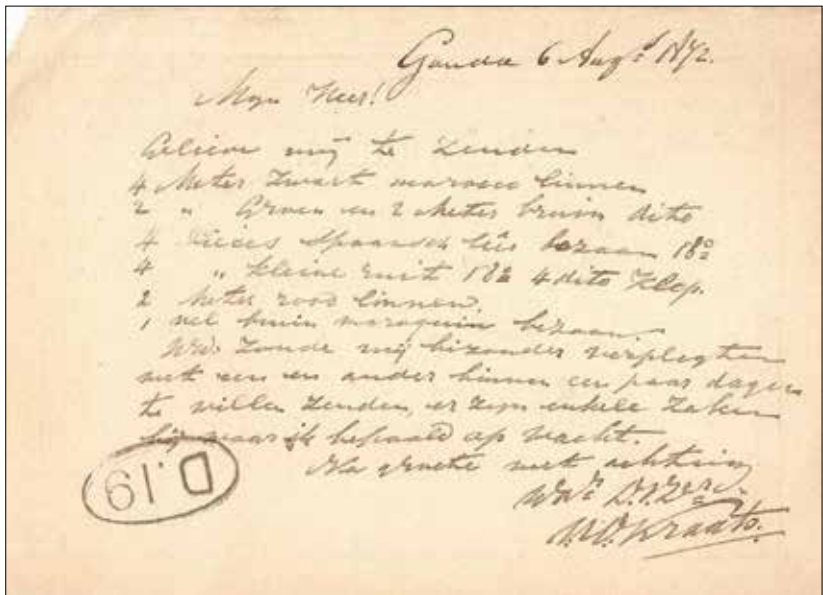 Gouda 6 Augs 1872.
Mijn Heer!
Gelieve mij te zenden
4 Meter zwart marocco linnen
2 " Groen en 2 Meter bruin dito
4 Pieces Spaansch bezaan 18o
4 " kleine ruit 18o 4 dito Klop.
2 Meter rood linnen.
1 vel bruin maroquin bezaan.
UEd. zoude mij bizonder verpligten
met een en ander binnen een paar dagen
te willen zenden, er zijn enkele zaken
bij waar ik bepaald op wacht.
Na groete met achting
D.19